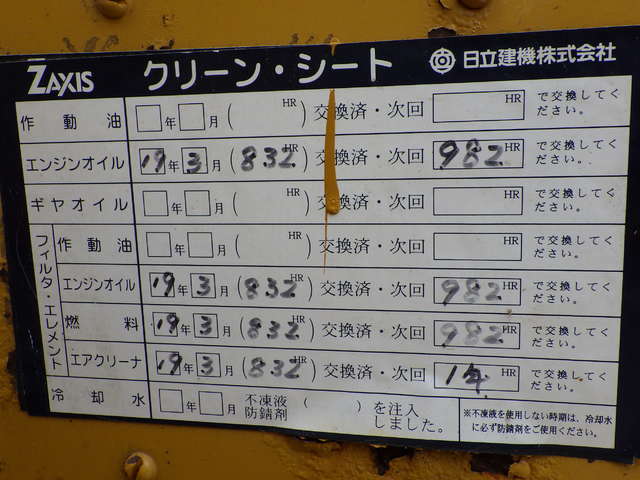 ZAXIS クリーン・シート 日立建機株式会社
作動油 年 月 ( HR) 交換済・次回 HR で交換してください。
エンジンオイル 19年3月 (832HR) 交換済・次回 982HR で交換してください。
ギヤオイル 年 月 ( HR) 交換済・次回 HR で交換してください。
フィルタ・エレメント
作動油 年 月 ( HR) 交換済・次回 HR で交換してください。
エンジンオイル 19年3月 (832HR) 交換済・次回 982HR で交換してください。
燃料 19年3月 (832HR) 交換済・次回 982HR で交換してください。
エアクリーナ 19年3月 (832HR) 交換済・次回 1年 HR で交換してください。
冷却水 年 月 不凍液 防錆剤 ( ) を注入しました。
※不凍液を使用しない時期は、冷却水
に必ず防錆剤をご使用ください。